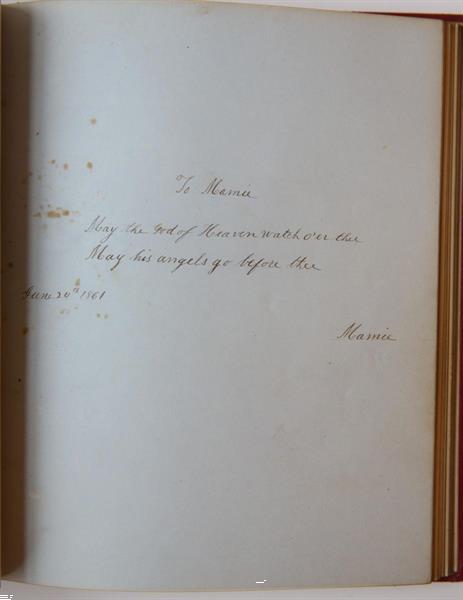 To Mamie
May the God of Heaven watch o'er thee
May his angels go before thee
June 20th 1861
Mamie